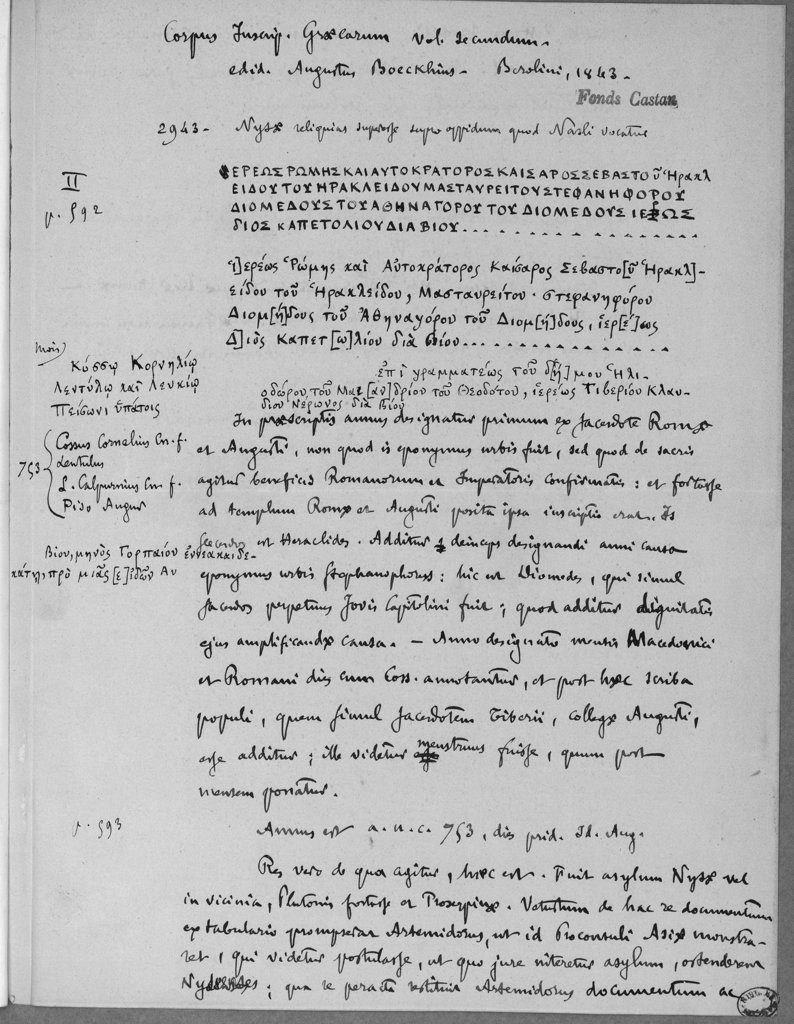 Corpus Inscrip. Græcarum vol. secundum.
edid. Augustus Boeckhius. Berolini, 1843.
Fonds Castan
2943. Nysæ reliquias superesse oppidum quod Nasli vocatur
II
p. 592
ΕΡΕΩΣΡΩΜΗΣΚΑΙΑΥΤΟΚΡΑΤΟΡΟΣΚΑΙΣΑΡΟΣΣΕΒΑΣΤοῦ Ἡρακλ
ΕΙΔΟΥΤΟΥΗΡΑΚΛΕΙΔΟΥΜΑΣΤΑΥΡΕΙΤΟΥΣΤΕΦΑΝΗΦΟΡΟΥ
ΔΙΟΜΕΔΟΥΣΤΟΥΑΘΗΝΑΓΟΡΟΥΤΟΥΔΙΟΜΕΔΟΥΣΙΕΡΩΣ
ΔΙΟΣΚΑΠΕΤΟΛΙΟΥΔΙΑΒΙΟΥ...............
Ἱ]ερέως Ῥώμης καὶ Αὐτοκράτορος Καίσαρος Σεβαστο[ῦ Ἡρακλ]-
είδου τοῦ Ἡρακλείδου, Μασταυρείτου· στεφανηφόρου
Διομ[ή]δους τοῦ Ἀθηναγόρου τοῦ Διομ[ή]δους, ἱερ[έ]ως
Δ]ιὸς Καπετ[ω]λίου διὰ βίου...............
ἐπὶ γραμματέως τοῦ δ[ή]μου Ἡλι-
οδώρου, τοῦ Μαι[αν]δρίου τοῦ Θεοδότου, ἱερέως Τιβερίου Κλαυ-
δίου Νέρωνος διὰ βίου
mois)
Κόσσῳ Κορνηλίῳ
Λεντύλῳ καὶ Λευκίῳ
Πείσωνι ὑπάτοις
753 { Cossus Cornelius Cn. f.
Lentulus
L. Calpurnius Cn. f.
Piso Augur
Βίου, μηνὸς Γορπαίου ἐννεακαιδε-
κάτῃ, πρὸ μιᾶς [ε]ἰδῶν Αυ
In præscriptis annus designatur primum ex sacerdote Romæ
et Augusti, non quod is eponymus urbis fuit, sed quod de sacris
agitur beneficio Romanorum et Imperatoris confirmatis: et fortasse
ad templum Romæ et Augusti posita ipsa inscriptio erat. Is
sacerdos est Heraclides. Additur deinceps designandi anni causa
eponymus urbis stephanophorus: hic est Diomedes, qui simul
sacerdos perpetuus Jovis Capitolini fuit; quod additur dignitatis
ejus amplificandæ causa. — Anno designato mensis Macedonici
et Romani dies cum Coss. annotantur, et post hæc scriba
populi, quem simul sacerdotem Tiberii, collegæ Augusti,
esse additur; ille videtur menstruus fuisse, quum post
mensem ponatur.
p. 593
Annus est a. u. c. 753, dies prid. Id. Aug.
Res vero de qua agitur, hæc est. Fuit asylum Nysæ vel
in vicinia, Plutonis fortasse et Proserpinæ. Vetustum de hac re documentum
ex tabulario prompserat Artemidorus, ut id Proconsuli Asiæ monstra-
ret, qui videtur postulasse, ut quo jure niteretur asylum, ostenderent
Nysaenses; qua re peracta restituit Artemidorus documentum ac